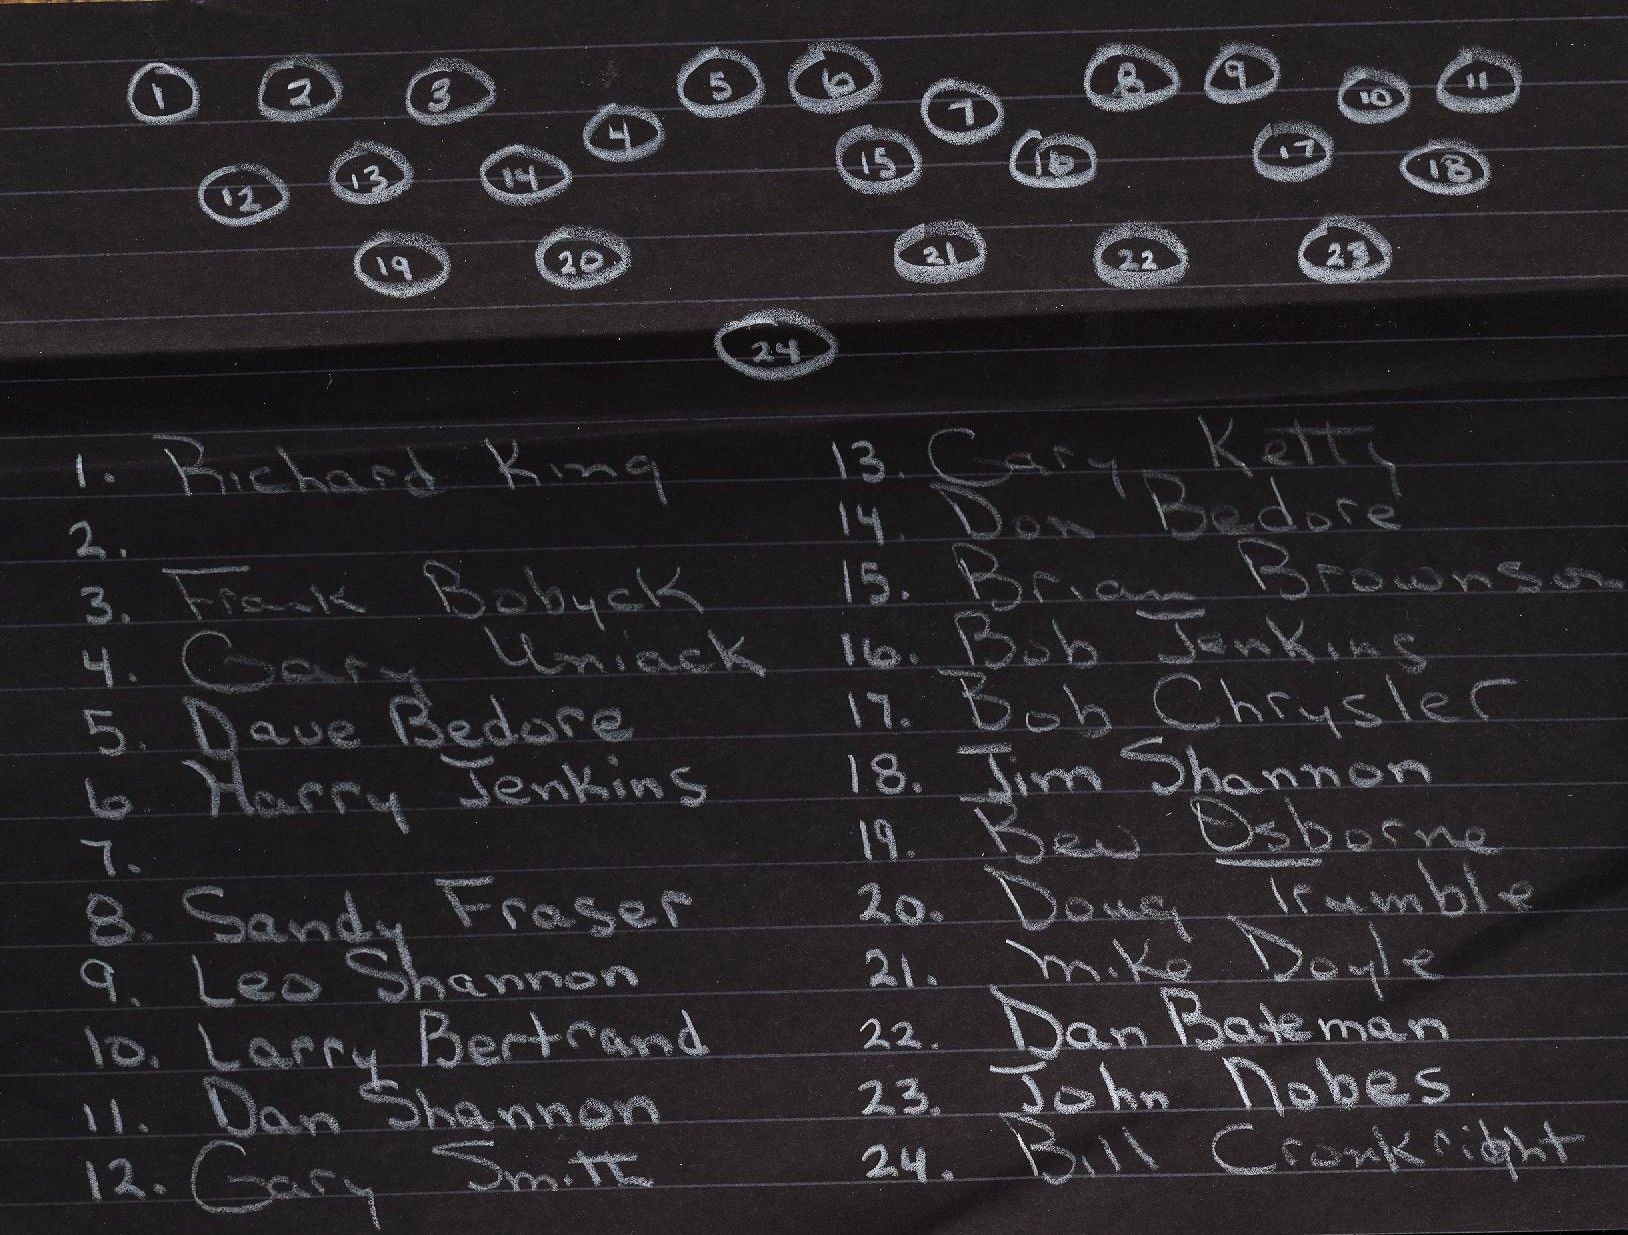 1 2 3 5 6 8 9 10 11
4 7
12 13 14 15 16 17 18
19 20 21 22 23
24
1. Richard King
2.
3. Frank Bobyck
4. Gary Uniack
5. Dave Bedore
6 Harry Jenkins
7.
8. Sandy Fraser
9. Leo Shannon
10. Larry Bertrand
11. Dan Shannon
12. Gary Smith
13. Gary Ketty
14. Don Bedore
15. Brian Brownson
16. Bob Jenkins
17. Bob Chrysler
18. Jim Shannon
19. Bew Osborne
20. Doug Trumble
21. Mike Doyle
22. Dan Bateman
23. John Nobes
24. Bill Cronkright